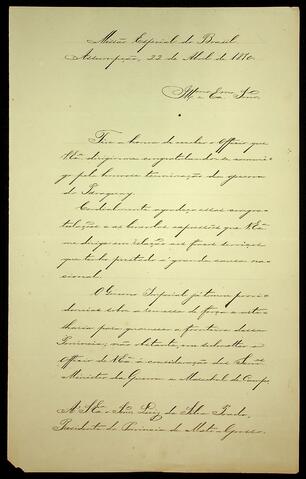 Missão Especial do Brasil
Assumpção, 22 de Abril de 1870.
Illmo e Exmo Snr.
Tive a honra de receber o Officio que
V.Exa. dirigio-me congratulando-se commi-
go pela honrosa terminação da guerra
do Paraguay.
Cordialmente agradeço essas congra-
tulações e as honrosas expressões que V.Exa
me dirige em relação aos fracos serviços
que tenho prestado á grande causa na-
cional.
O Governo Imperial já tomou provi-
dencias sobre a remessa de força e arti-
lharia para guarnecer a fronteira dessa
Provincia; não obstante, vou submetter o
Officio de V.Exa á consideração dos Snres
Ministro da Guerra e Marechal de Campo
A S.Exa o Snr. Luiz da Silva Prado,
Presidente da Provincia de Mato-Grosso.